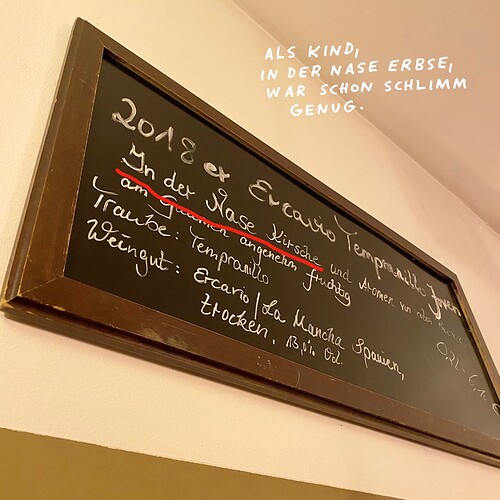 ALS KIND,
IN DER NASE ERBSE,
WAR SCHON SCHLIMM
GENUG.
2018 er Ercavio Tempranillo Joven
In der Nase Kirsche und Aromen von
am Gaumen angenehm fruchtig
Traube: Tempranillo
Weingut: Ercavio / La Mancha Spanien,
trocken, 13,0% 0,2L